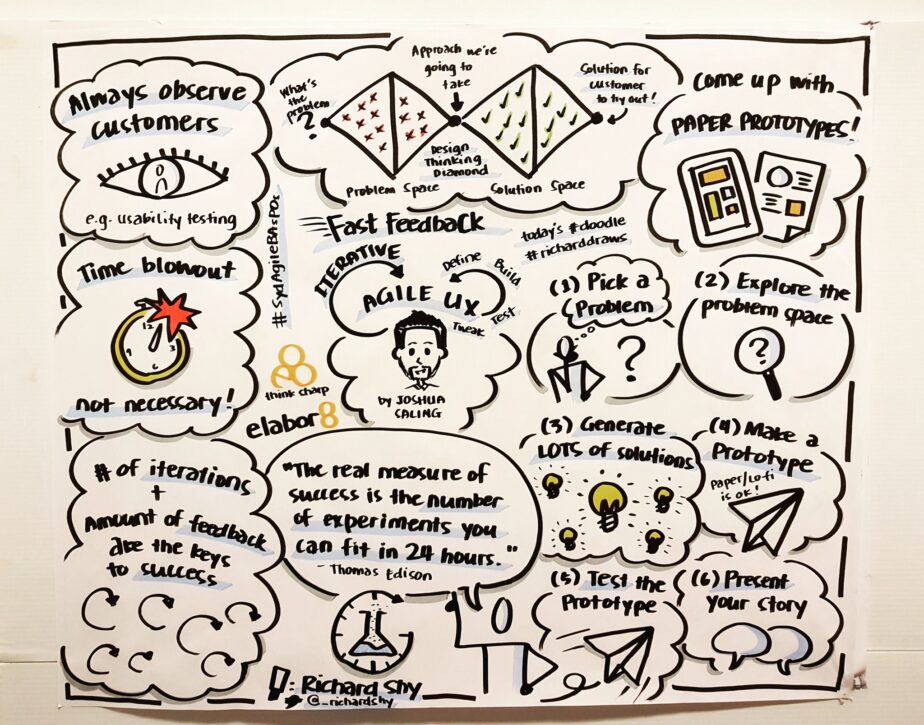 Always observe
customers
e.g. usability testing
What's
the
problem
?
Approach we're
going to
take
Solution for
customer
to try out!
Design
Thinking
Diamond
Problem Space
Solution Space
Come up with
PAPER PROTOTYPES!
Time blowout
12
3
6
9
not necessary!
#SydAgileBAsPOs
Fast Feedback
today's #doodle
#richarddraws
ITERATIVE
AGILE UX
Define
Build
Test
Tweak
by JOSHUA
SALING
think sharp
elabor8
(1) Pick a
Problem
?
(2) Explore the
problem space
?
(3) Generate
LOTS of solutions
(4) Make a
Prototype
Paper/Lofi
is ok!
(5) Test the
Prototype
(6) Present
your story
# of iterations
+
Amount of feedback
are the keys
to success
"The real measure of
success is the number
of experiments you
can fit in 24 hours."
- Thomas Edison
: Richard Shy
@_richardshy